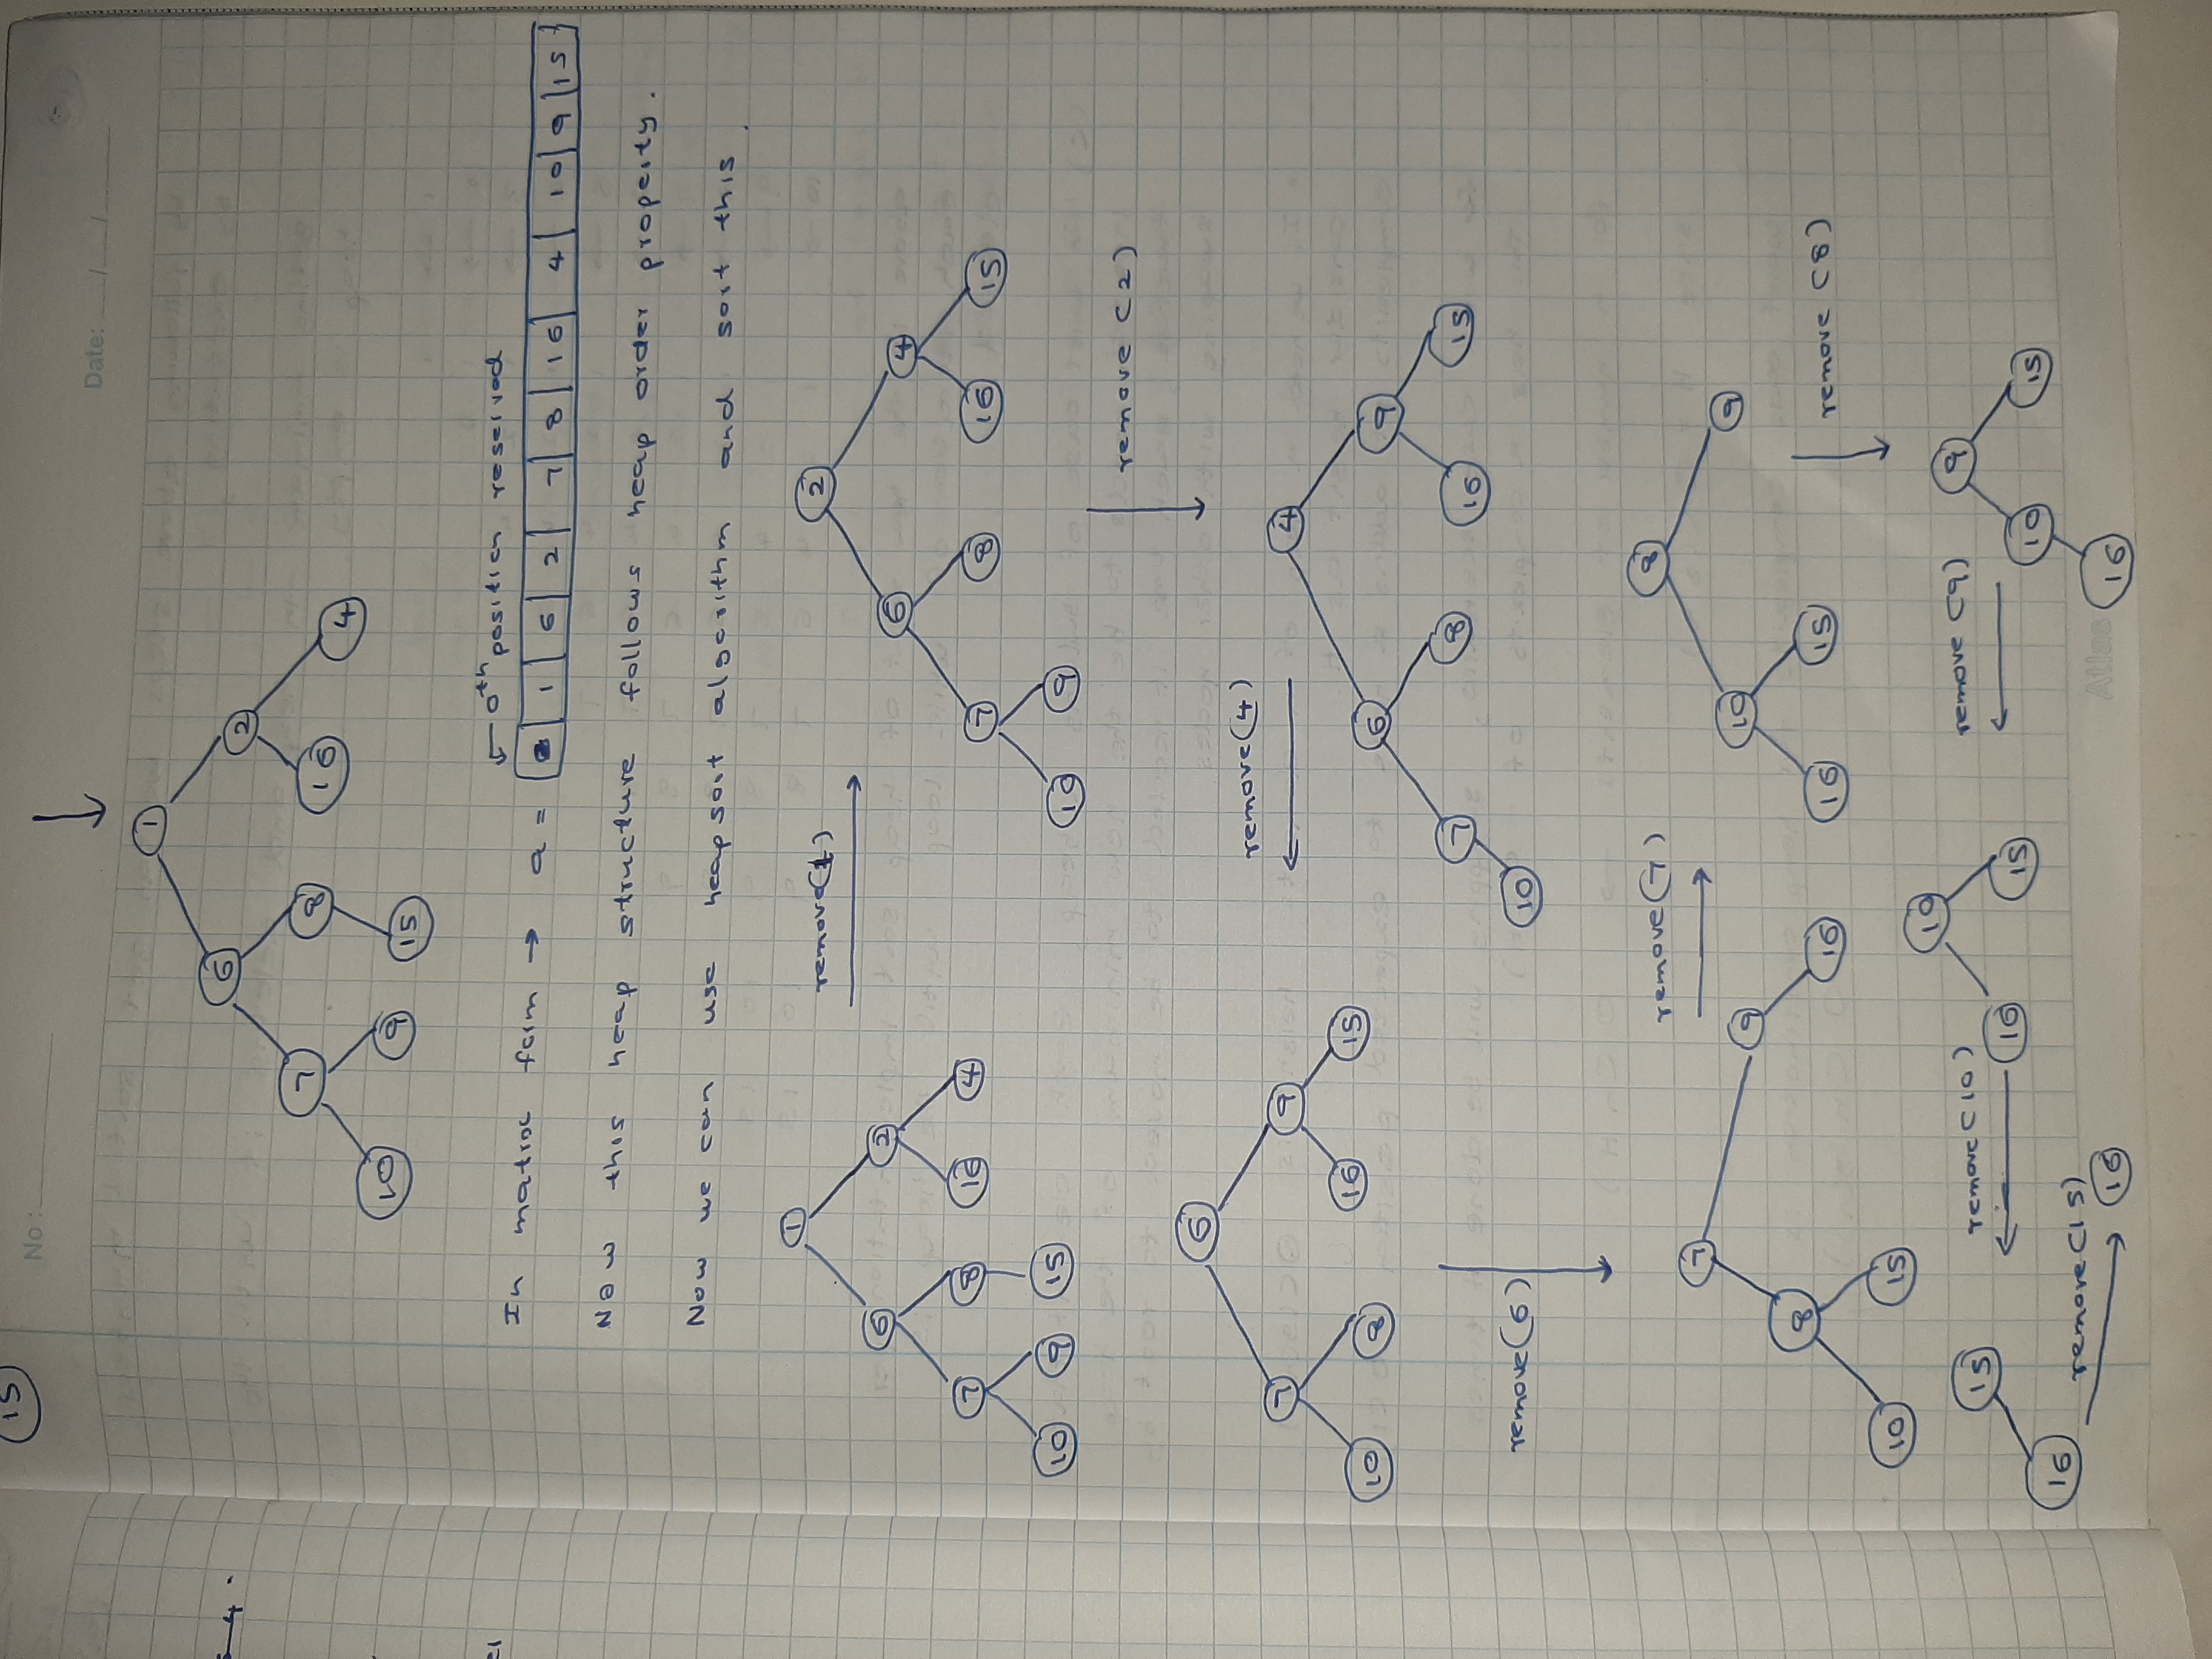 15
No :
Date: / /
5 4 .
1
6
2
7 8 16 4
10 9 15
0th position reserved
In matrix form → a = 1 6 2 7 8 16 4 10 9 15
Now this heap structure follows heap order property.
Now we can use heapsort algorithm and sort this.
1
6 2
7 8 16 4
10 9 15
remove(1)
2
6 4
7 8 16 15
10 9
remove(2)
4
6 9
7 8 16 15
10
remove(4)
6
7 9
10 8 16 15
remove(6)
7
8 9
10 15 16
remove(7)
8
10 9
16 15
remove(8)
9
10 15
16
remove(9)
10
16 15
remove(10)
15
16
remove(15)
16
Atlas